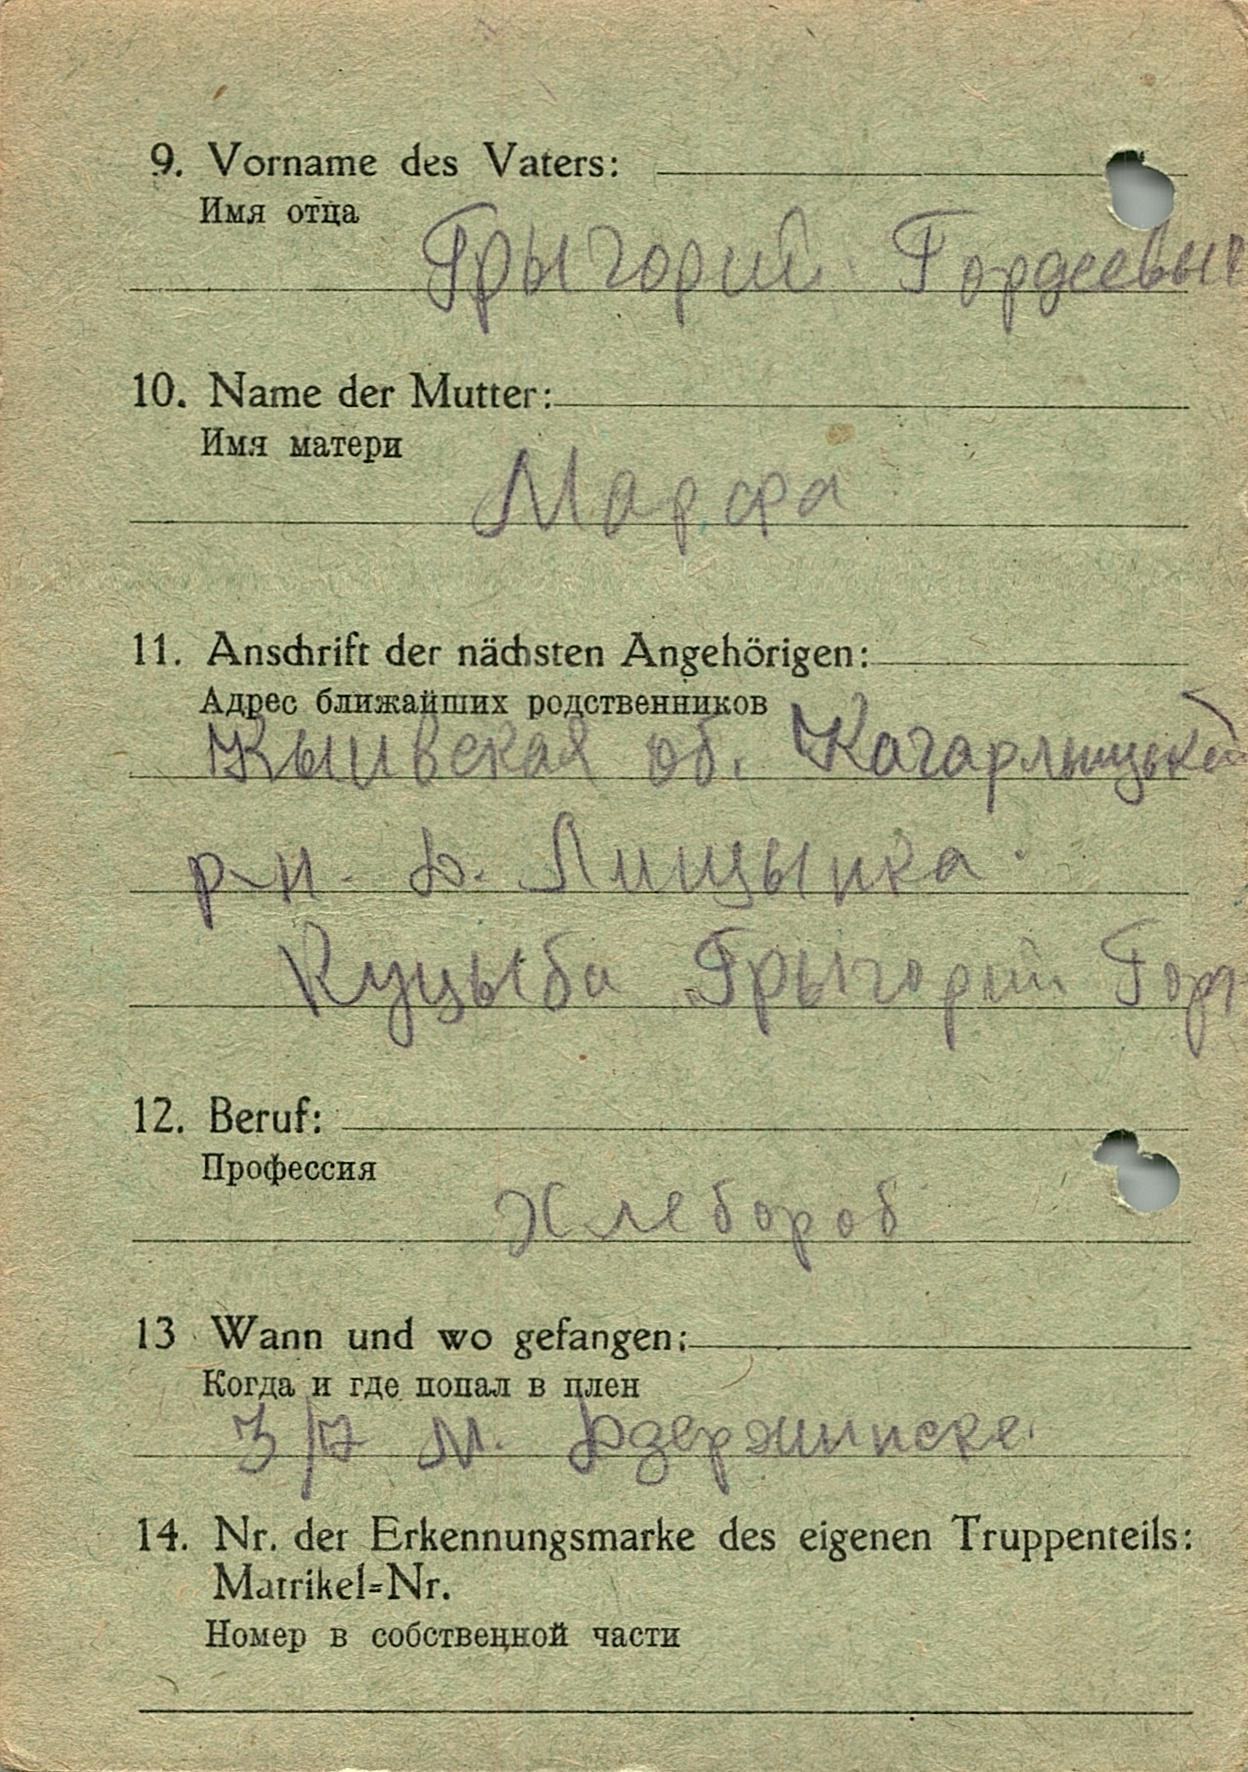 9. Vorname des Vaters:
Имя отца
Грыгорий Гордеевыч
10. Name der Mutter:
Имя матери
Марфа
11. Anschrift der nächsten Angehörigen:
Адрес ближайших родственников
Кыивская об. Кагарлыцькой
р-н. д. Лищынка
Куцыба Грыгорий Горд
12. Beruf:
Профессия
Хлебороб
13 Wann und wo gefangen:
Когда и где попал в плен
3/7 м. Дзержинске.
14. Nr. der Erkennungsmarke des eigenen Truppenteils:
Matrikel=Nr.
Номер в собственной части